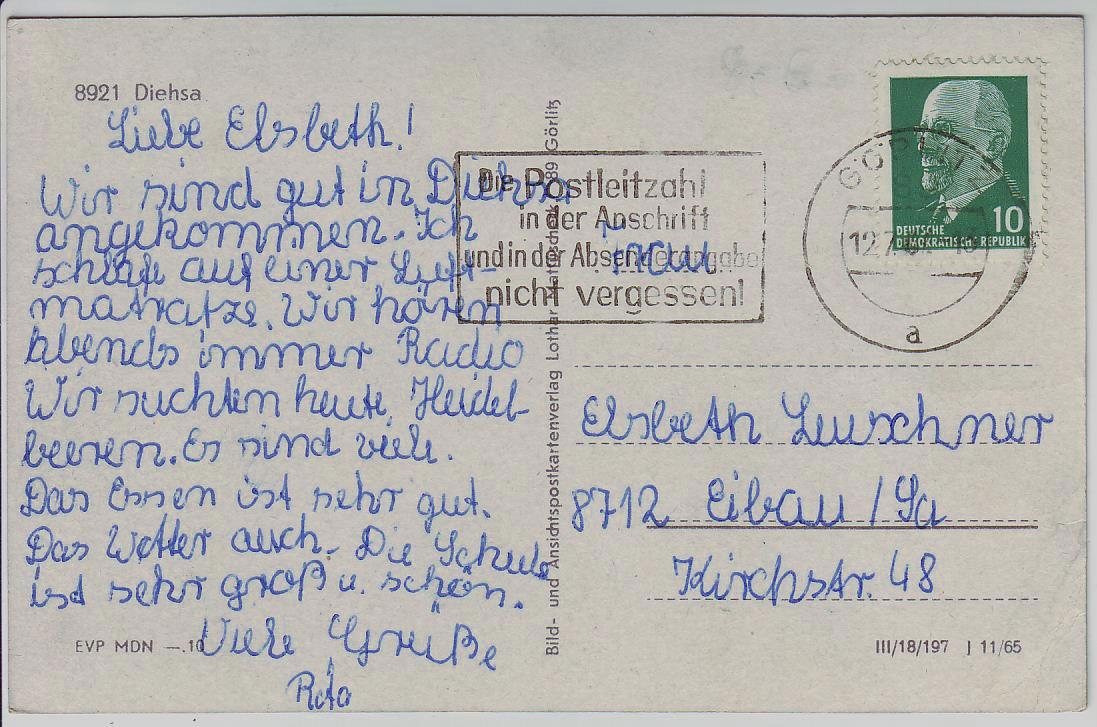 8921 Diehsa
Liebe Elsbeth!
Wir sind gut in Diehsa
angekommen. Ich
schlafe auf einer Luft-
matratze. Wir hören
Abends immer Radio
Wir suchten heute Heidel-
beeren. Es sind viele.
Das Essen ist sehr gut.
Das Wetter auch. Die Schule
ist sehr groß u. schön.
Viele Grüße
Rita
EVP MDN —.10
Bild- und Ansichtspostkartenverlag Lothar 89 Görlitz
Die Postleitzahl
in der Anschrift
und in der Absenderangabe
nicht vergessen!
DEUTSCHE
DEMOKRATISCHE REPUBLIK
10
a
Elsbeth Leuschner
8712 Eibau / Sa
Kirchstr. 48
III/18/197 J 11/65